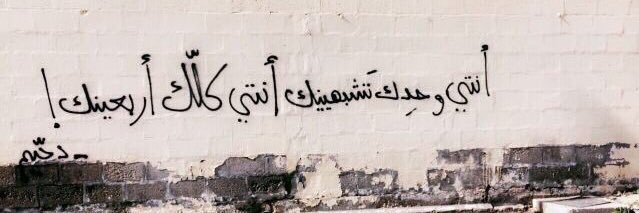 أنتي وحدِك تَشبهينك أنتي كلّك أربعينك !